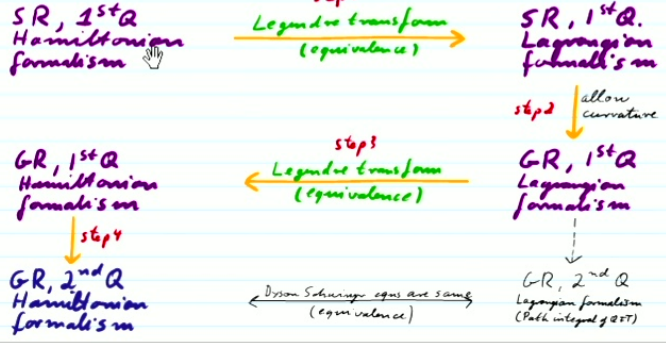 step
SR, 1st Q
Hamiltonian
formalism
Legendre transform
(equivalence)
SR, 1st Q.
Lagrangian
formalism
step 2
allow
curvature
step 3
GR, 1st Q
Hamiltonian
formalism
Legendre transform
(equivalence)
GR, 1st Q
Lagrangian
formalism
step 4
GR, 2nd Q
Hamiltonian
formalism
Dyson Schwinger eqns are same
(equivalence)
GR, 2nd Q
Lagrangian formalism
(Path integral of QFT)